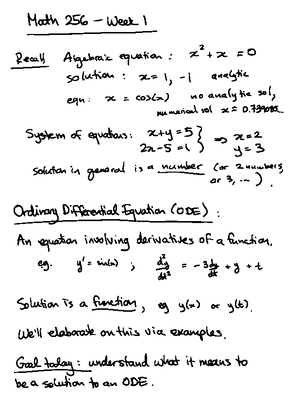 Math 256 - Week 1
Recall Algebraic equation: x² + x = 0
solution: x = 1, -1 analytic
eqn: x = cos(x) no analytic sol,
numerical sol x ≈
System of equations: x+y = 5
2x-5 = 1 } ⇒ x = 2
y = 3
solution in general is a number (or 2 numbers,
or 3, ...).
Ordinary Differential Equation (ODE):
An equation involving derivatives of a function.
eg. y' = sin(x) ; d²y/dt² = -3 dy/dt + y + t
Solution is a function, eg y(x) or y(t).
We'll elaborate on this via examples.
Goal today: understand what it means to
be a solution to an ODE.